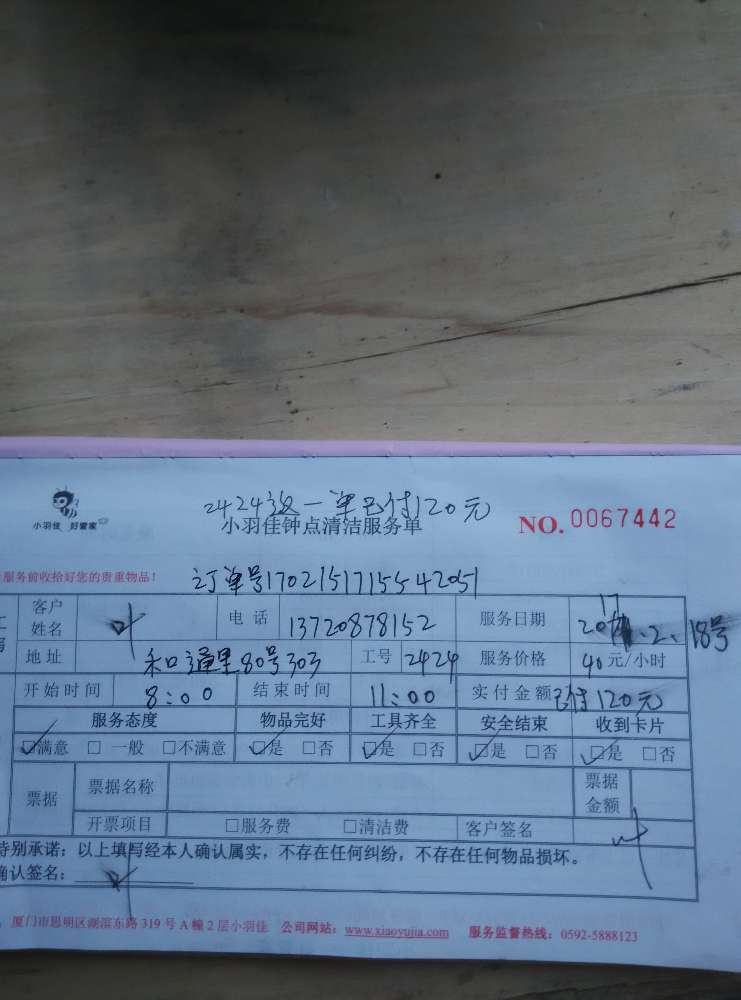 2424返一单已付120元
小羽佳 好管家
小羽佳钟点清洁服务单
NO. 0067442
服务前收拾好您的贵重物品!
订单号1702151715542051
客户姓名 叶 电话 13720878152 服务日期 2017.2.18号
地址 和通里80号303 工号 2424 服务价格 40元/小时
开始时间 8:00 结束时间 11:00 实付金额 已付120元
服务态度 物品完好 工具齐全 安全结束 收到卡片
☑满意 □一般 □不满意 ☑是 □否 ☑是 □否 ☑是 □否 ☑是 □否
票据 票据名称 票据金额
开票项目 □服务费 □清洁费 客户签名 叶
特别承诺:以上填写经本人确认属实,不存在任何纠纷,不存在任何物品损坏。
确认签名: 叶
厦门市思明区湖滨东路319号A幢2层小羽佳 公司网站:www.xiaoyujia.com 服务监督热线:0592-5888123